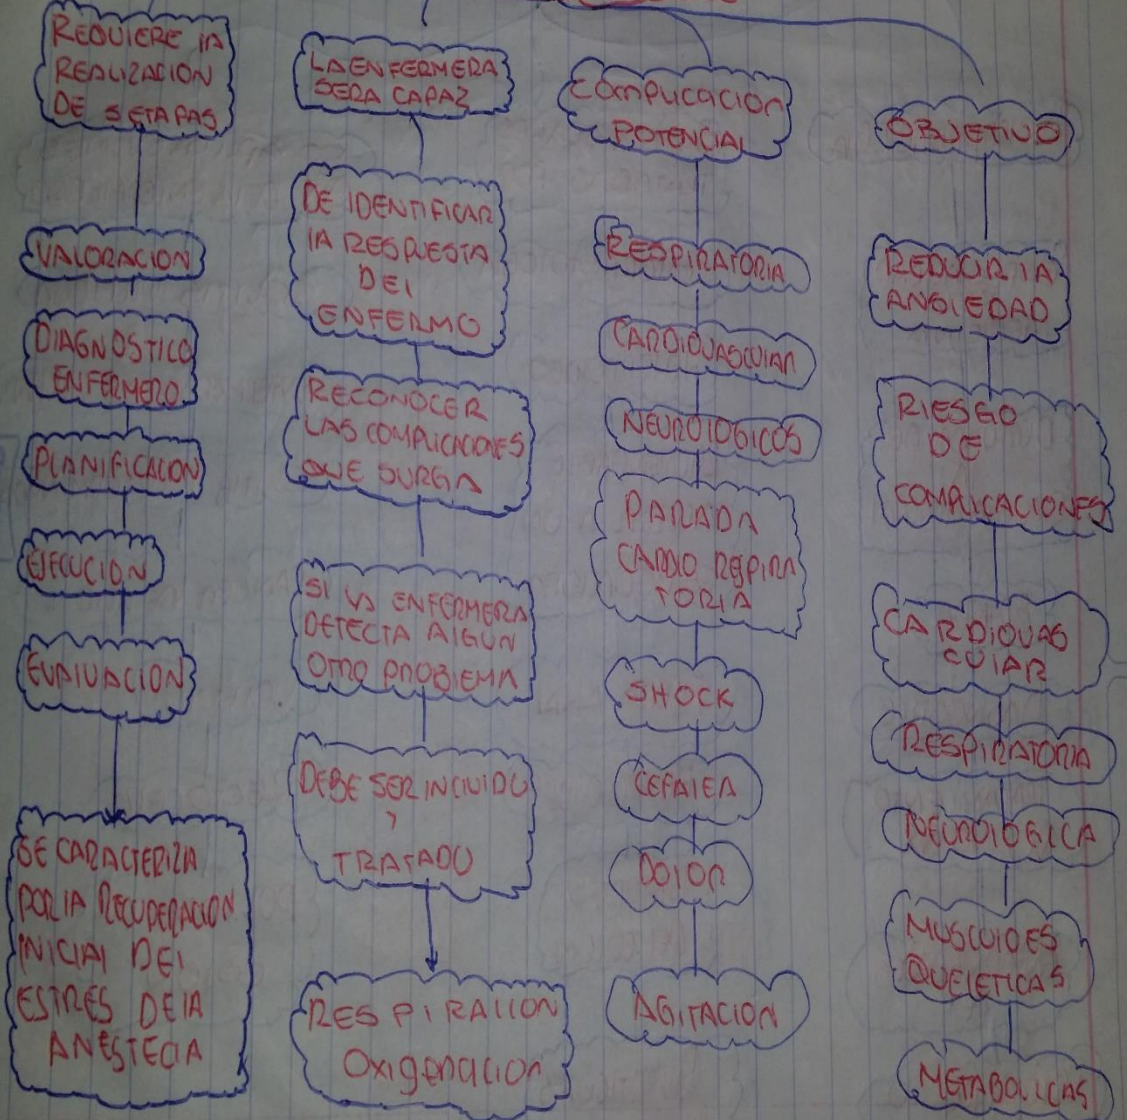 REQUIERE LA
REALIZACION
DE 5 ETAPAS
VALORACION
DIAGNOSTICO
ENFERMERO
PLANIFICACION
EJECUCION
EVALUACION
SE CARACTERIZA
POR LA RECUPERACION
INICIAL DEL
ESTRES DE LA
ANESTECIA
LA ENFERMERA
SERA CAPAZ
DE IDENTIFICAR
LA RESPUESTA
DEL
ENFERMO
RECONOCER
LAS COMPLICACIONES
QUE SURGA
SI LA ENFERMERA
DETECTA ALGUN
OTRO PROBLEMA
DEBE SER INCLUIDO
Y
TRATADO
RESPIRACION
Oxigenacion
COMPLICACION
POTENCIAL
RESPIRATORIA
CARDIOVASCULAR
NEUROLOGICOS
PARADA
CARDIO RESPIRA
TORIA
SHOCK
CEFALEA
DOLOR
AGITACION
OBJETIVO
REDUCIR LA
ANCIEDAD
RIESGO
DE
COMPLICACIONES
CARDIOVAS
CULAR
RESPIRATORIA
NEUROLOGICA
MUSCULOES
QUELETICAS
METABOLICAS